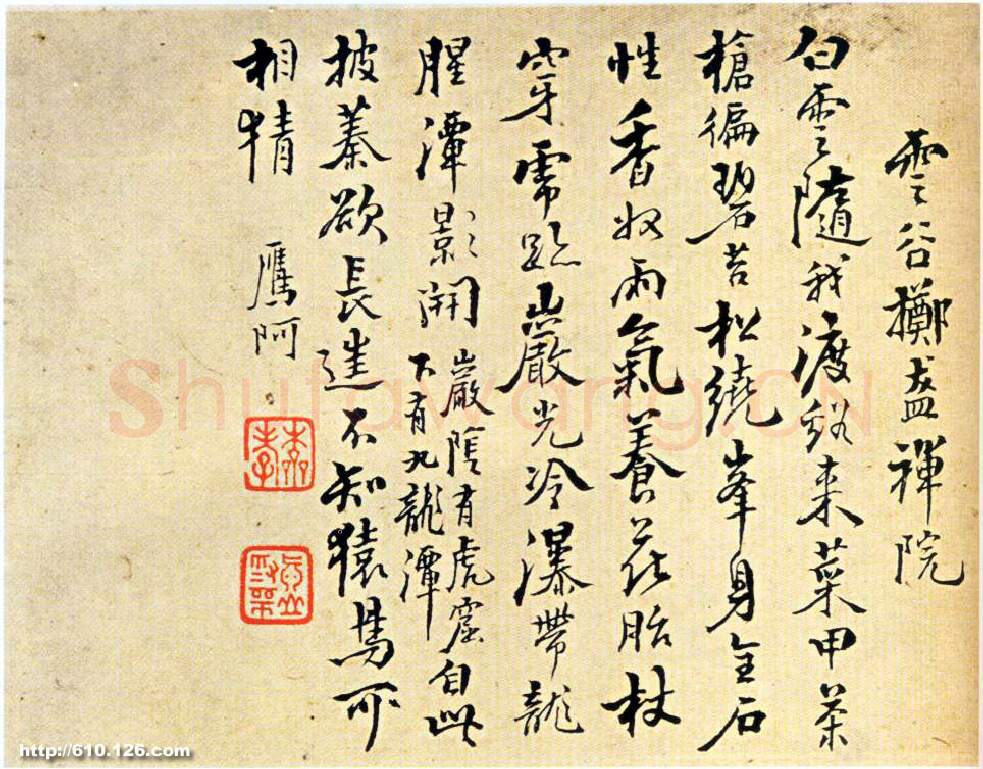 雲谷擲盋禪院
白雲隨我渡谿来菜甲茶
槍徧碧苔松繞峯身全石
性香奴雨氣養花胎杖
穿虎跡巖光冷瀑帶龍
腥潭影開巖陰有虎窟
下有九龍潭自此
披蓁欲長往不知猿鳥可
相猜 鷹阿
Shufawang.CN
http://610.126.com